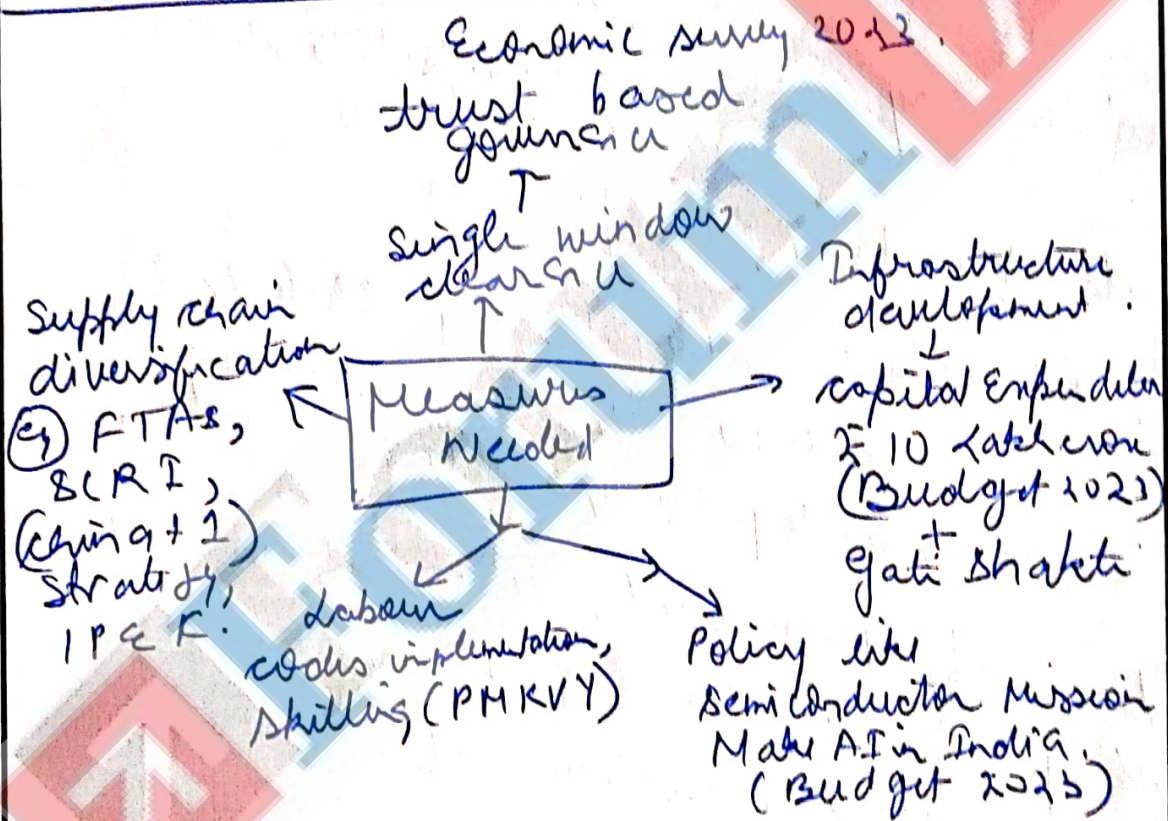 Economic survey 2023.
trust based
governance
↑
Single window
clearance
↑
Supply chain
diversification
eg FTAs,
SCRI,
(China + 1)
strategy,
IPEF.
Measures
Needed
Infrastructure
development.
↓
capital Expenditure
₹ 10 Lakh crore
(Budget 2023)
+
Gati Shakti
Labour
codes implementation,
skilling (PMKVY)
Policy like
semiconductor Mission
Make AI in India.
(Budget 2023)
Forum